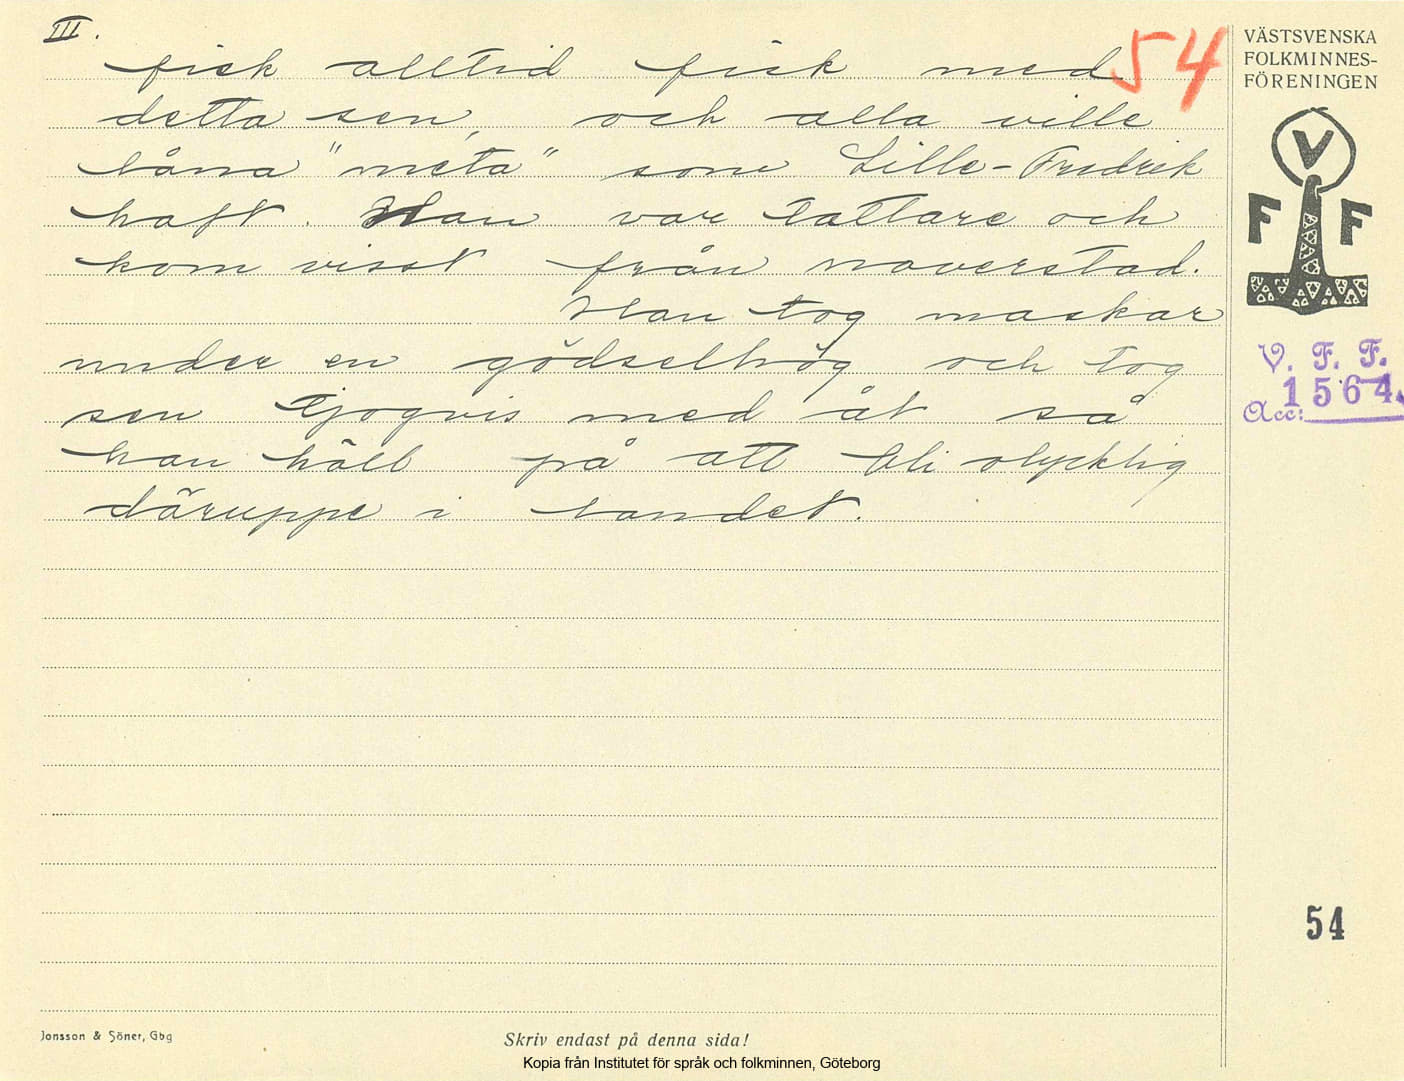 III.
54
fick alltid fisk med
detta sen, och alla ville
låna "meta" som Lille-Fredrik
haft. Han var tattare och
kom visst från naverstad.
Han tog maskar
under en gödselhög och tog
sen tjogvis med åt så
han höll på att bli olycklig
däruppe i landet.
VÄSTSVENSKA
FOLKMINNES-
FÖRENINGEN
V
F F
V. F. F.
1564
Acc:
54
Jonsson & Söner, Gbg
Skriv endast på denna sida!
Kopia från Institutet för språk och folkminnen, Göteborg